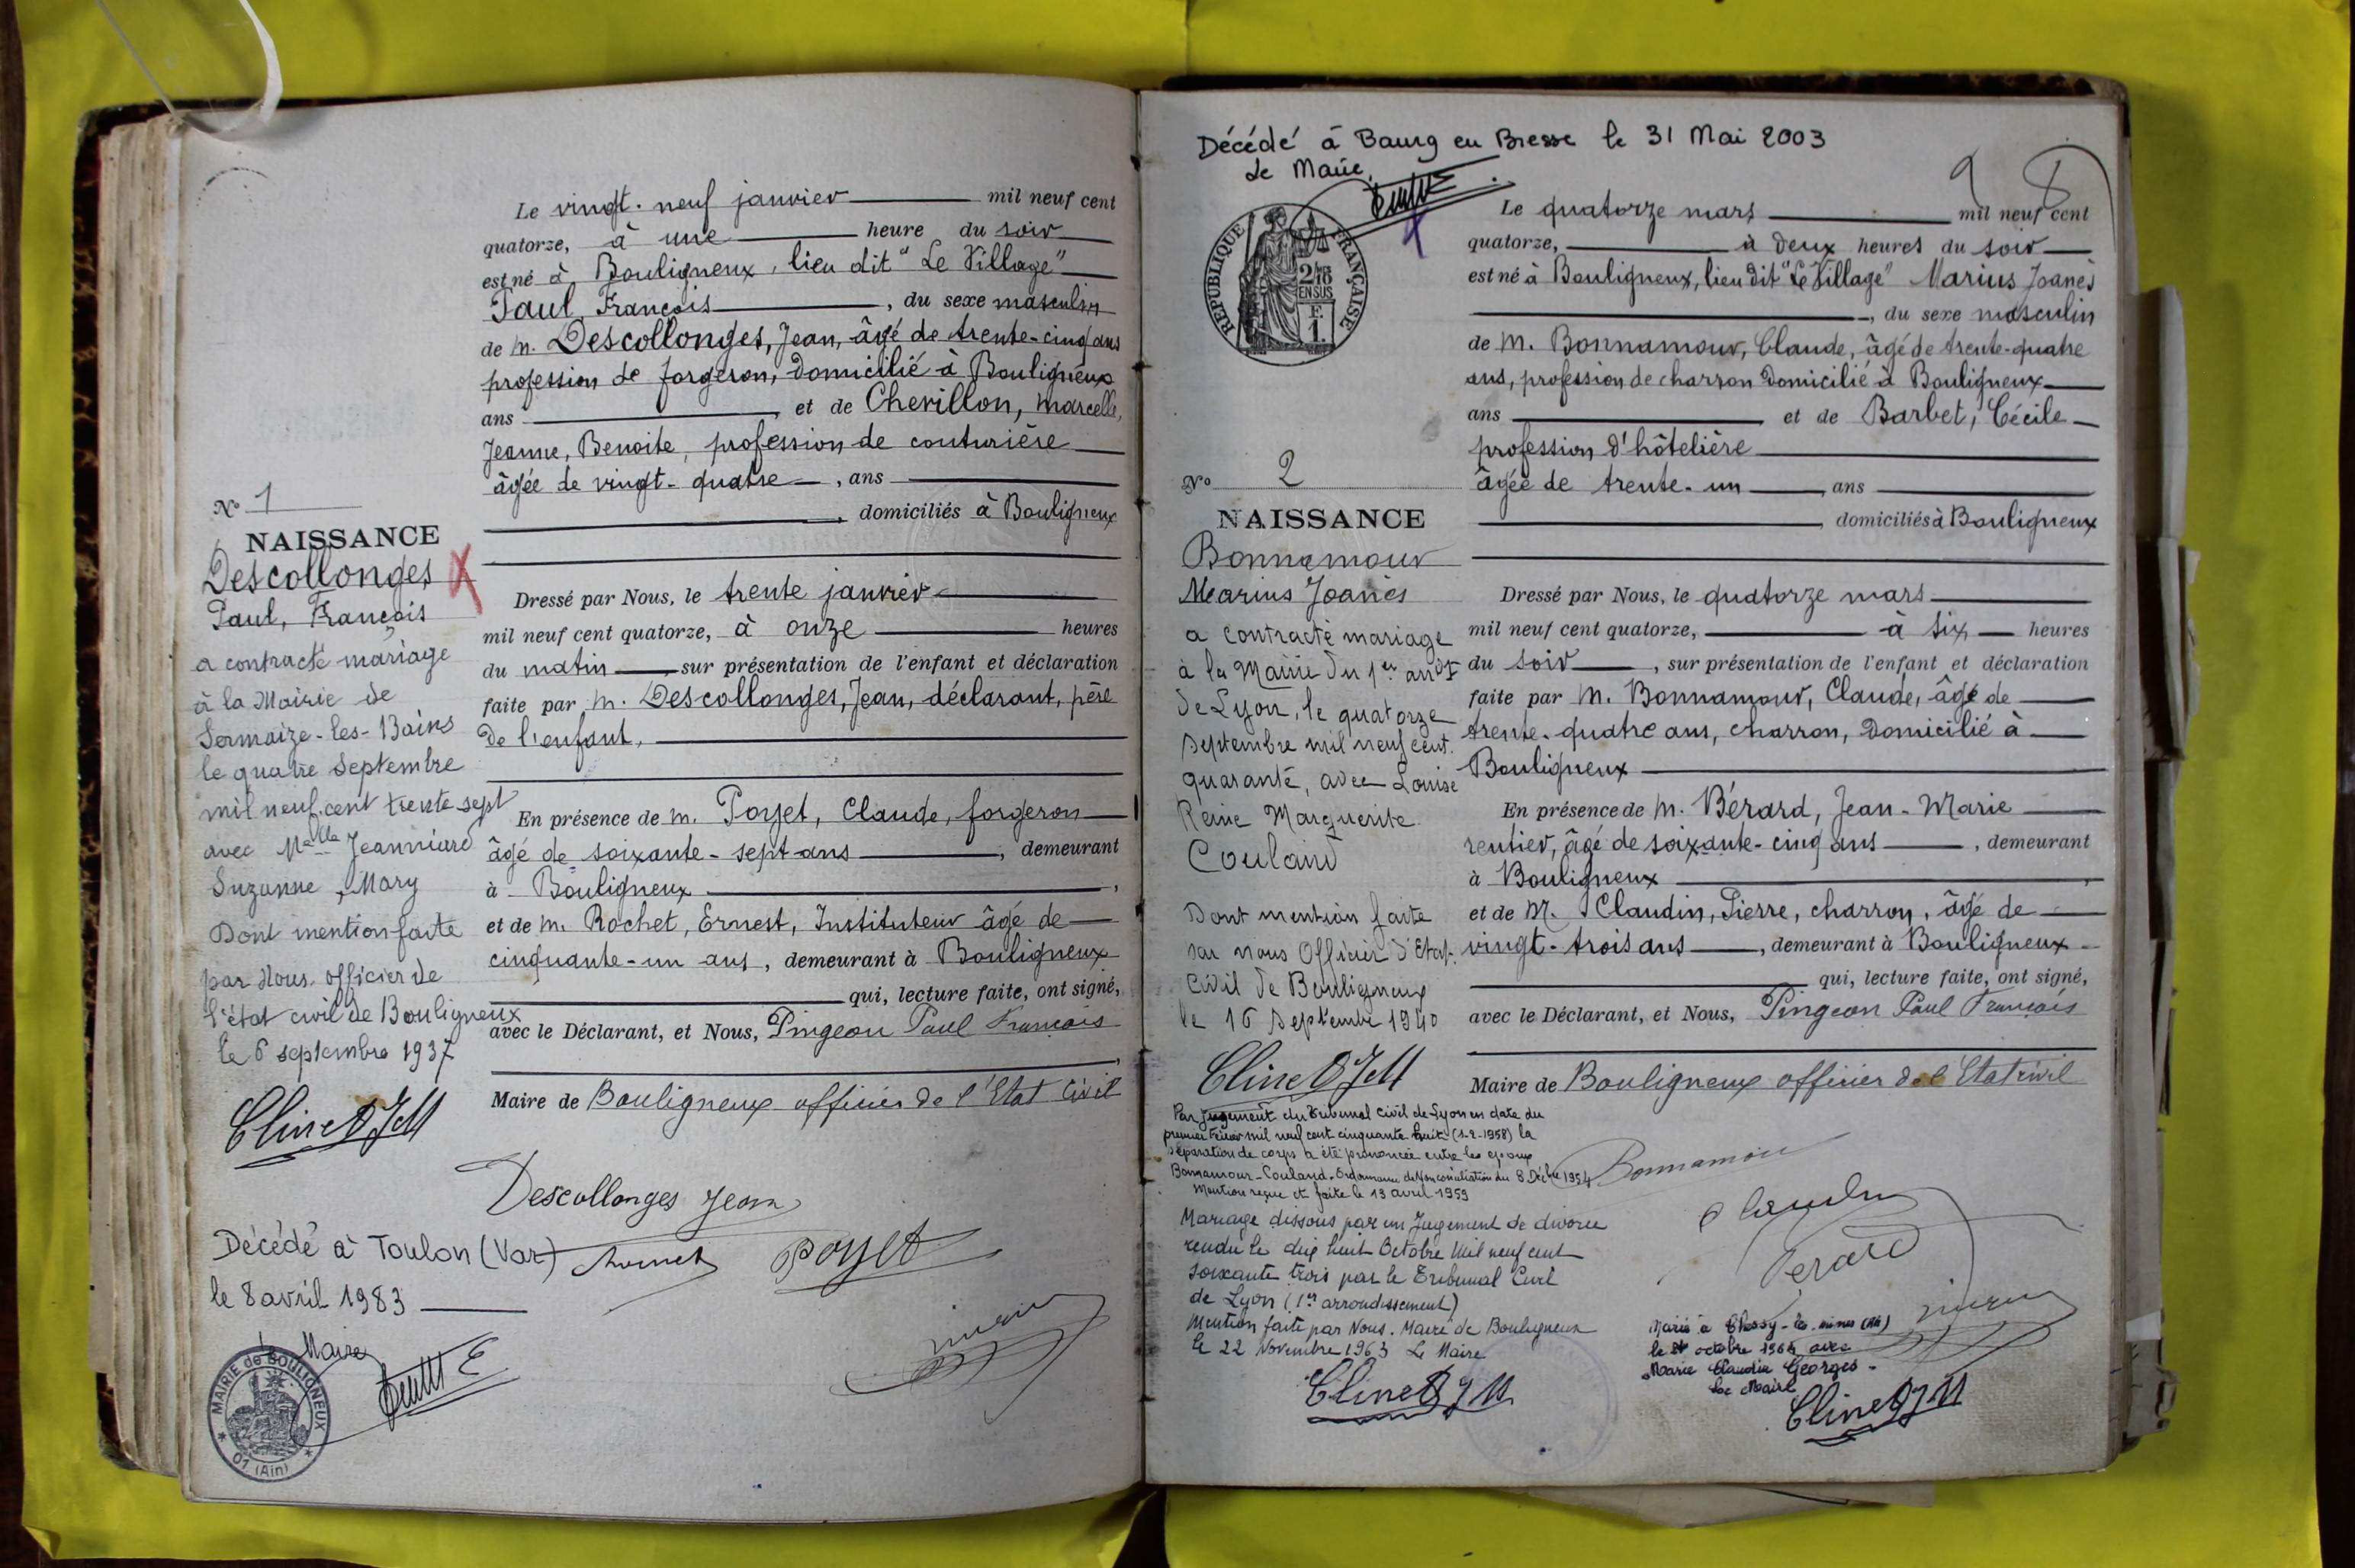 Le vingt-neuf janvier mil neuf cent
quatorze, à une heure du soir
est né à Bouligneux, lieu dit "Le Village"
Paul, François, du sexe masculin
de M. Descollonges, Jean, âgé de trente-cinq ans
profession de forgeron, domicilié à Bouligneux
ans, et de Chevillon, Marcelle,
Jeanne, Benoite, profession de couturière
âgée de vingt-quatre, ans
, domiciliés à Bouligneux
Dressé par Nous, le trente janvier
mil neuf cent quatorze, à onze heures
du matin, sur présentation de l'enfant et déclaration
faite par M. Descollonges, Jean, déclarant, père
de l'enfant,
En présence de M. Poyet, Claude, forgeron
âgé de soixante-sept ans, demeurant
à Bouligneux,
et de M. Rochet, Ernest, Instituteur âgé de
cinquante-un ans, demeurant à Bouligneux
qui, lecture faite, ont signé,
avec le Déclarant, et Nous, Pingeon Paul François
Maire de Bouligneux officier de l'Etat Civil
Descollonges Jean
Poyet
No 1
NAISSANCE
Descollonges X
Paul, François
a contracté mariage
à la Mairie de
Sermaize-les-Bains
le quatre septembre
mil neuf cent trente sept
avec Melle Jeanniard
Suzanne, Mary
Dont mention faite
par Nous, officier de
l'état civil de Bouligneux
le 6 septembre 1937
Clinet JM
Décédé à Toulon (Var)
le 8 avril 1983
Le Maire
MAIRIE de BOULIGNEUX
01 (Ain)
Décédé à Bourg en Bresse le 31 Mai 2003
Le Maire,
9 8
RÉPUBLIQUE FRANÇAISE
2/10
EN SUS
F.
1.
Le quatorze mars mil neuf cent
quatorze, à deux heures du soir
est né à Bouligneux, lieu dit "Le Village" Marius Joanès
, du sexe masculin
de M. Bonnamour, Claude, âgé de trente-quatre
ans, profession de charron domicilié à Bouligneux
ans et de Barbet, Cécile
profession d'hôtelière
âgée de trente-un, ans
, domiciliés à Bouligneux
Dressé par Nous, le quatorze mars
mil neuf cent quatorze, à six heures
du soir, sur présentation de l'enfant et déclaration
faite par M. Bonnamour, Claude, âgé de
trente-quatre ans, charron, domicilié à
Bouligneux
En présence de M. Bérard, Jean-Marie
rentier, âgé de soixante-cinq ans, demeurant
à Bouligneux,
et de M. Claudin, Pierre, charron, âgé de
vingt-trois ans, demeurant à Bouligneux
qui, lecture faite, ont signé,
avec le Déclarant, et Nous, Pingeon Paul François
Maire de Bouligneux officier de l'Etat civil
No 2
NAISSANCE
Bonnamour
Marius Joanès
a contracté mariage
à la Mairie du 1er arrdt
de Lyon, le quatorze
septembre mil neuf cent
quarante, avec Louise
Reine Marguerite
Couland
Dont mention faite
par nous Officier d'Etat-
Civil de Bouligneux
le 16 septembre 1940
Clinet JM
Par jugement du tribunal civil de Lyon en date du
premier février mil neuf cent cinquante-huit (1-2-1958) la
séparation de corps a été prononcée entre les époux
Bonnamour-Couland. Ordonnance de Nonconciliation du 8 Décbre 1954
Mention reçue et faite le 13 avril 1959
Mariage dissous par un Jugement de divorce
rendu le dix huit Octobre Mil neuf cent
soixante trois par le Tribunal Civil
de Lyon (1er arrondissement)
Mention faite par Nous. Maire de Bouligneux
le 22 Novembre 1963 Le Maire
Clinet JM
Bonnamour
Claudin
Berard
Marié à Chessy-les-mines
le octobre 1964 avec
Marie Claudia Georges-
Le Maire
Clinet JM